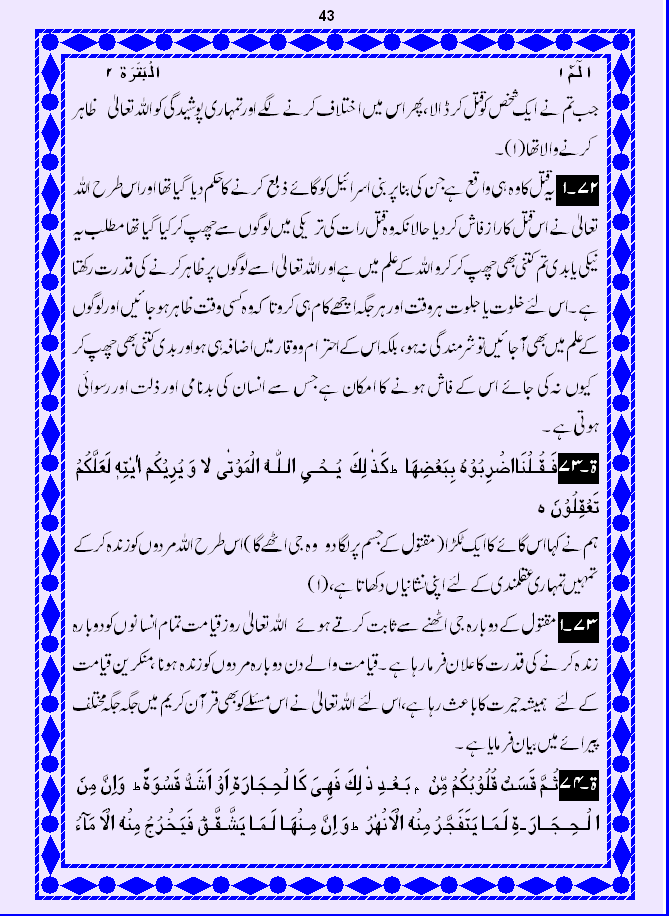 43
الٓمّٓ ١ اَلْبَقَرَة ٢
جب تم نے ایک شخص کو قتل کر ڈالا، پھر اس میں اختلاف کرنے لگے اور تمہاری پوشیدگی کو اللہ تعالیٰ ظاہر
کرنے والا تھا (۱)۔
۷۲۔۱ یہ قتل کا وہ ہی واقع ہے جن کی بنا پر بنی اسرائیل کو گائے ذبح کرنے کا حکم دیا گیا تھا اور اس طرح اللہ
تعالیٰ نے اس قتل کا راز فاش کر دیا حالانکہ وہ قتل رات کی تریکی میں لوگوں سے چھپ کر کیا گیا تھا مطلب یہ
نیکی یا بدی تم کتنی بھی چھپ کر کرو اللہ کے علم میں ہے اور اللہ تعالیٰ اسے لوگوں پر ظاہر کرنے کی قدرت رکھتا
ہے۔ اس لئے خلوت یا جلوت ہر وقت اور ہر جگہ اچھے کام ہی کرو تا کہ وہ کسی وقت ظاہر ہو جائیں اور لوگوں
کے علم میں بھی آ جائیں تو شرمندگی نہ ہو، بلکہ اس کے احترام و وقار میں اضافہ ہی ہو اور بدی کتنی بھی چھپ کر
کیوں نہ کی جائے اس کے فاش ہونے کا امکان ہے جس سے انسان کی بدنامی اور ذلت اور رسوائی
ہوتی ہے۔
ة۔۷۳ فَقُلْنَا اضْرِبُوْهُ بِبَعْضِهَا ؕ كَذٰلِكَ يُحْيِ اللّٰهُ الْمَوْتٰى لا وَ يُرِيْكُمْ اٰيٰتِهٖ لَعَلَّكُمْ
تَعْقِلُوْنَ ه
ہم نے کہا اس گائے کا ایک ٹکڑا (مقتول کے جسم پر لگا دو وہ جی اٹھے گا) اس طرح اللہ مردوں کو زندہ کر کے
تمہیں تمہاری عقلمندی کے لئے اپنی نشانیاں دکھاتا ہے، (۱)
۷۳۔۱ مقتول کے دوبارہ جی اٹھنے سے ثابت کرتے ہوئے اللہ تعالیٰ روز قیامت تمام انسانوں کو دوبارہ
زندہ کرنے کی قدرت کا اعلان فرما رہا ہے۔ قیامت والے دن دوبارہ مردوں کو زندہ ہونا منکرین قیامت
کے لئے ہمیشہ حیرت کا باعث رہا ہے، اس لئے اللہ تعالیٰ نے اس مسئلے کو بھی قرآن کریم میں جگہ جگہ مختلف
پیرائے میں بیان فرمایا ہے۔
ة۔۷۴ ثُمَّ قَسَتْ قُلُوْبُكُمْ مِّنْۢ بَعْدِ ذٰلِكَ فَهِيَ كَالْحِجَارَةِ اَوْ اَشَدُّ قَسْوَةً ؕ وَاِنَّ مِنَ
الْحِجَارَةِ لَمَا يَتَفَجَّرُ مِنْهُ الْاَنْهٰرُ ؕ وَاِنَّ مِنْهَا لَمَا يَشَّقَّقُ فَيَخْرُجُ مِنْهُ الْاَ مَآءُ